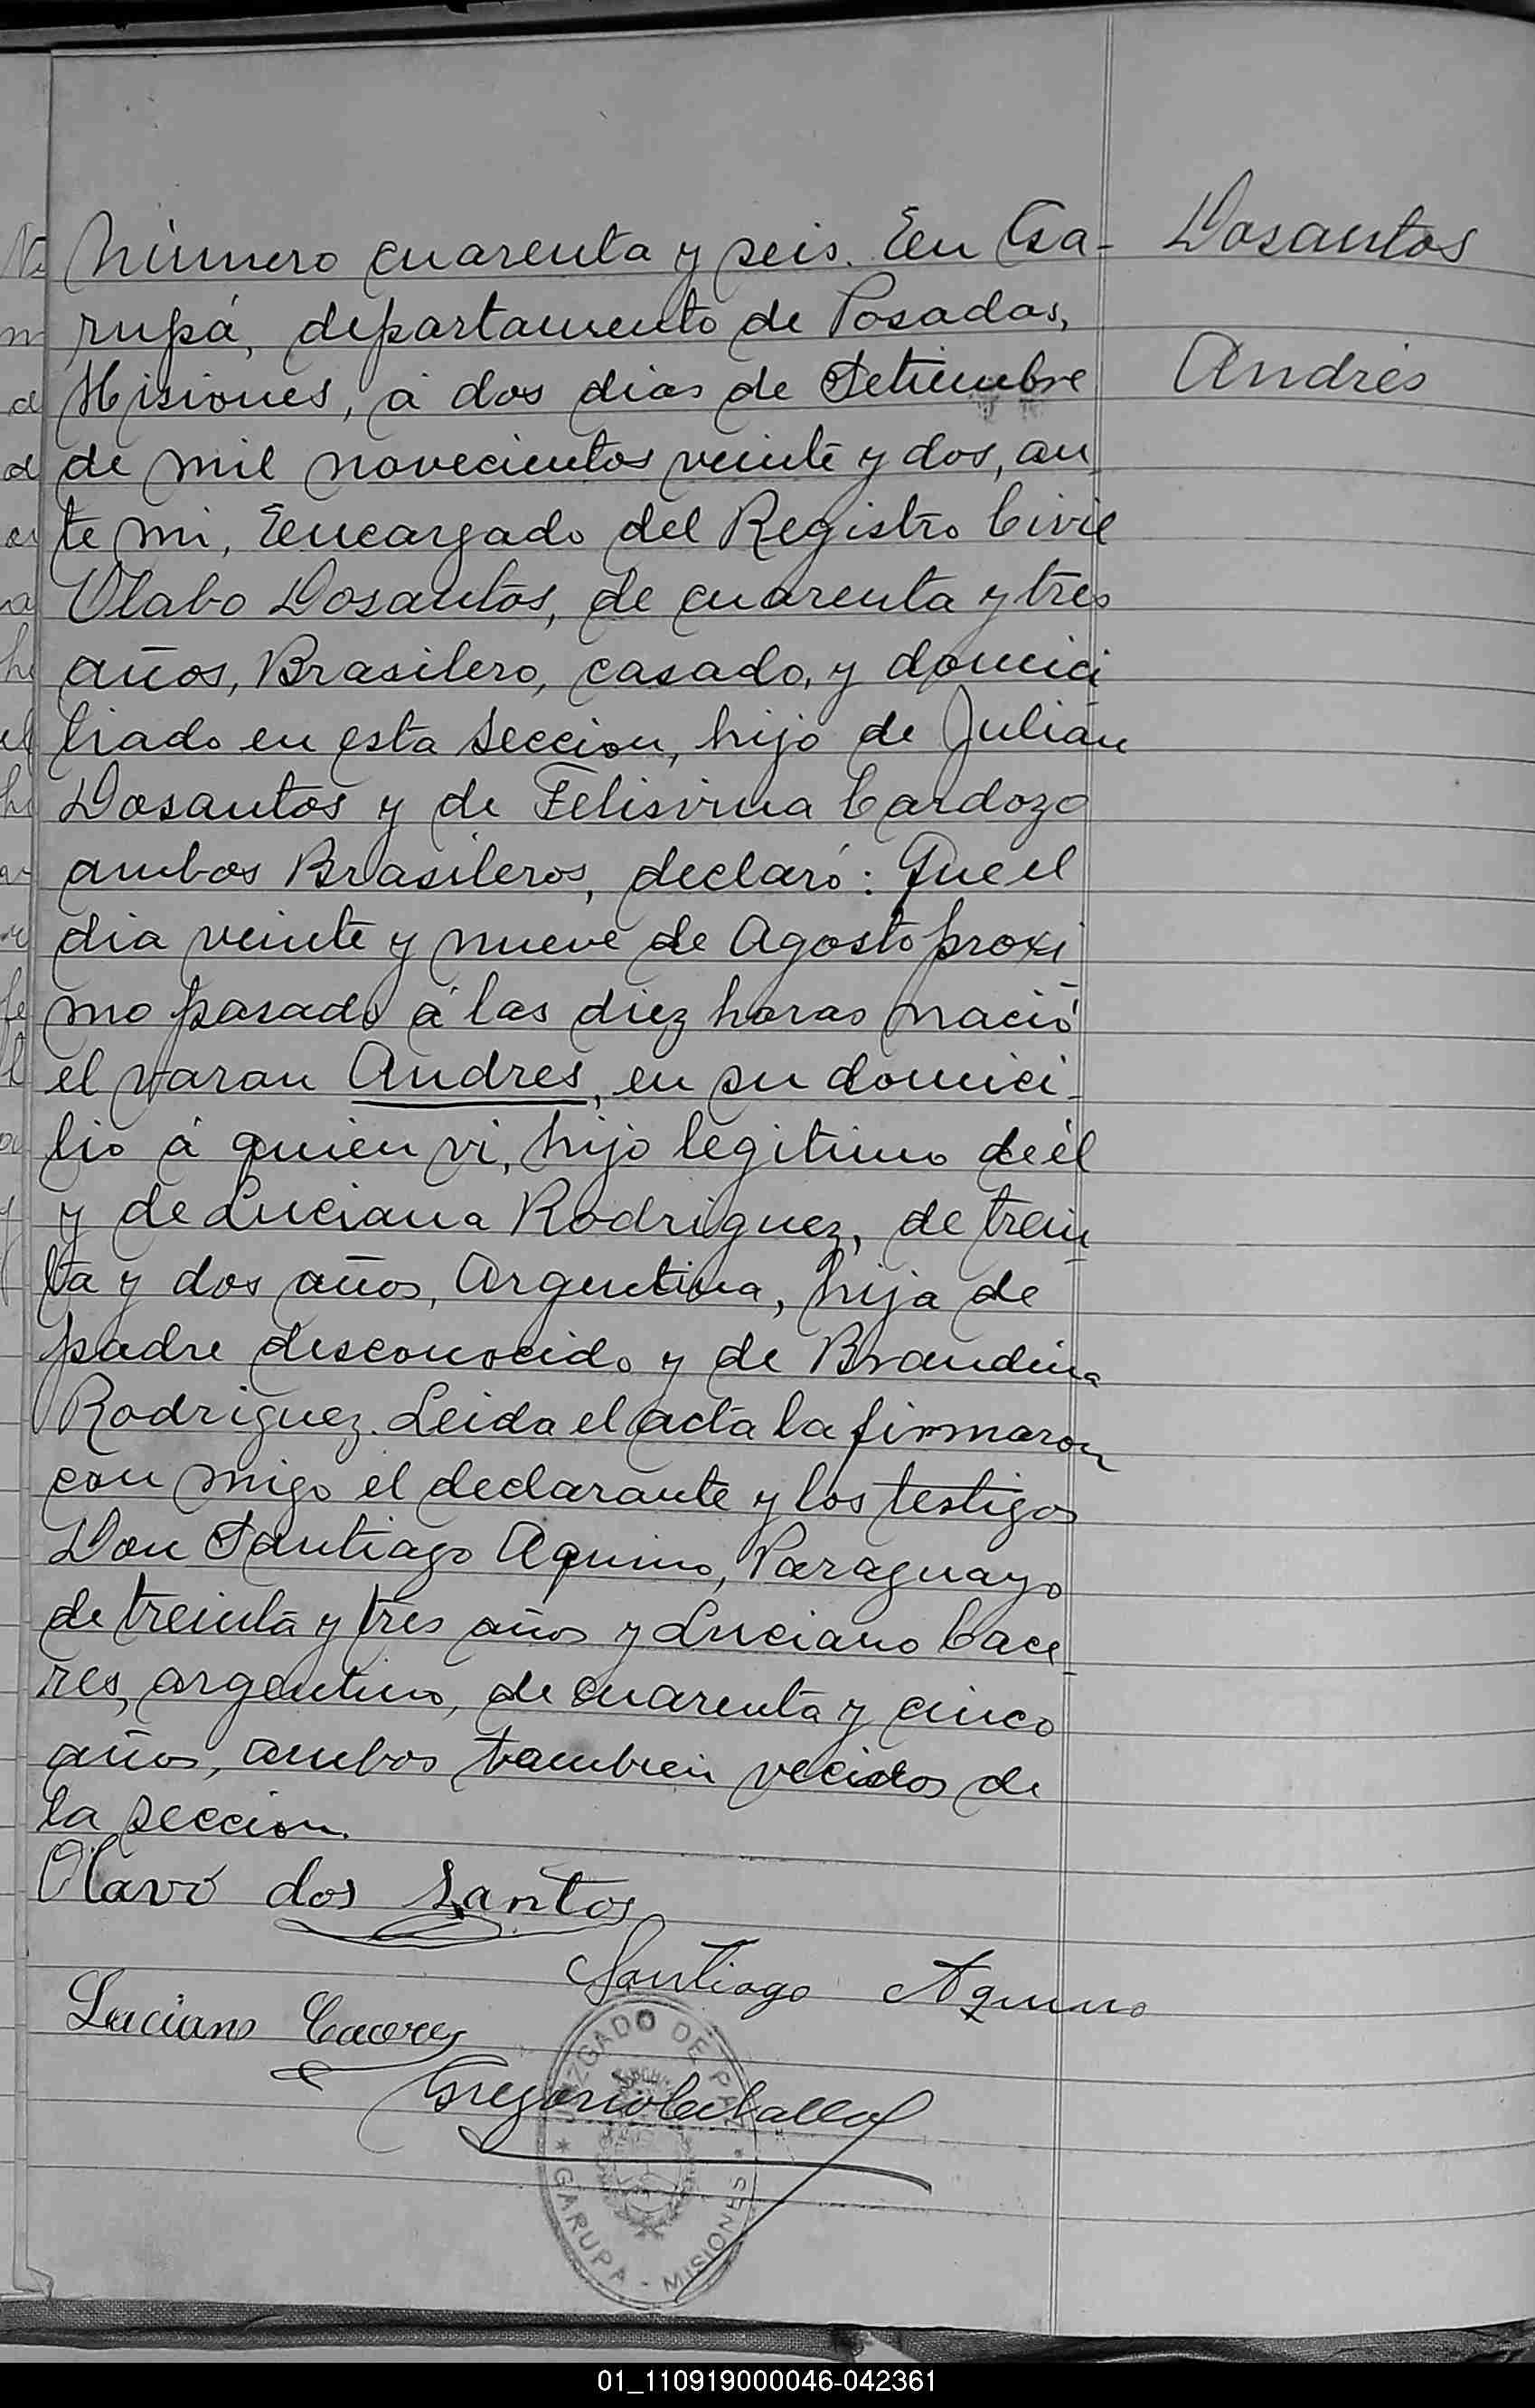 Número cuarenta y seis. En Ga-
rupá, departamento de Posadas,
Misiones, á dos dias de Setiembre
de mil novecientos veinte y dos, an
te mi, Encargado del Registro Civil
Olabo Dosantos, de cuarenta y tres
años, Brasilero, casado, y domici
liado en esta Seccion, hijo de Julián
Dosantos y de Felisvina Cardozo
ambos Brasileros, declaró: Que el
dia veinte y nueve de Agosto proxi
mo pasado á las diez horas nació
el varon Andres, en su domici-
lio á quien vi, hijo legitimo de él
y de Luciana Rodriguez, de trein
ta y dos años, Argentina, hija de
padre desconocido y de Brandina
Rodriguez. Leida el acta la firmaron
con migo el declarante y los testigos
Don Santiago Aquino, Paraguayo
de treinta y tres años y Luciano Cace
res, argentino, de cuarenta y cinco
años, ambos tambien vecidos de
la seccion.
Dosantos
Andrés
Olavo dos Santos
Santiago Aquino
Luciano Caceres
Gregorio
JUZGADO DE PAZ
* GARUPA - MISIONES *
01_110919000046-042361